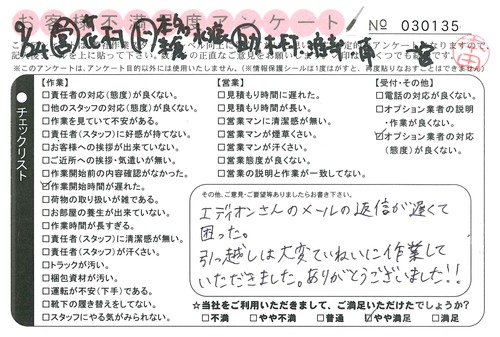 お客様不満足度アンケート
No 030135
※このアンケートは、アンケート目的以外には使用いたしません。(※情報保護シールは1度はがすと、再度貼りなおすことはできません)
チェックリスト
【作業】
□責任者の対応(態度)が良くない。
□他のスタッフの対応(態度)が良くない。
□作業を見ていて不安がある。
□責任者(スタッフ)に好感が持てない。
□お客様への挨拶が出来ていない。
□ご近所への挨拶・気遣いが無い。
□作業開始前の内容確認がなかった。
☑作業開始時間が遅れた。
□荷物の取り扱いが雑である。
□お部屋の養生が出来ていない。
□作業時間が長すぎる。
□責任者(スタッフ)に清潔感が無い。
□責任者(スタッフ)が汗くさい。
□トラックが汚い。
□梱包資材が汚い。
□運転が不安(下手)である。
□靴下の履き替えをしてない。
□スタッフにやる気がみられない。
【営業】
□見積もり時間に遅れた。
□見積もり時間が長い。
□営業マンに清潔感が無い。
□営業マンが煙草くさい。
□営業マンが汗くさい。
□営業態度が良くない。
□営業の説明と作業が一致してない。
【受付・その他】
□電話の対応が良くない。
□オプション業者の説明
・作業が良くない。
☑オプション業者の対応
(態度)が良くない。
その他、ご意見・ご要望等ありましたらお書き下さい。
エディオンさんのメールの返信が遅くて
困った。
引っ越しは大変ていねいに作業して
いただきました。ありがとうございました!!
☆当社をご利用いただきまして、ご満足いただけたでしょうか?
□不満 □やや不満 □普通 ☑やや満足 □満足